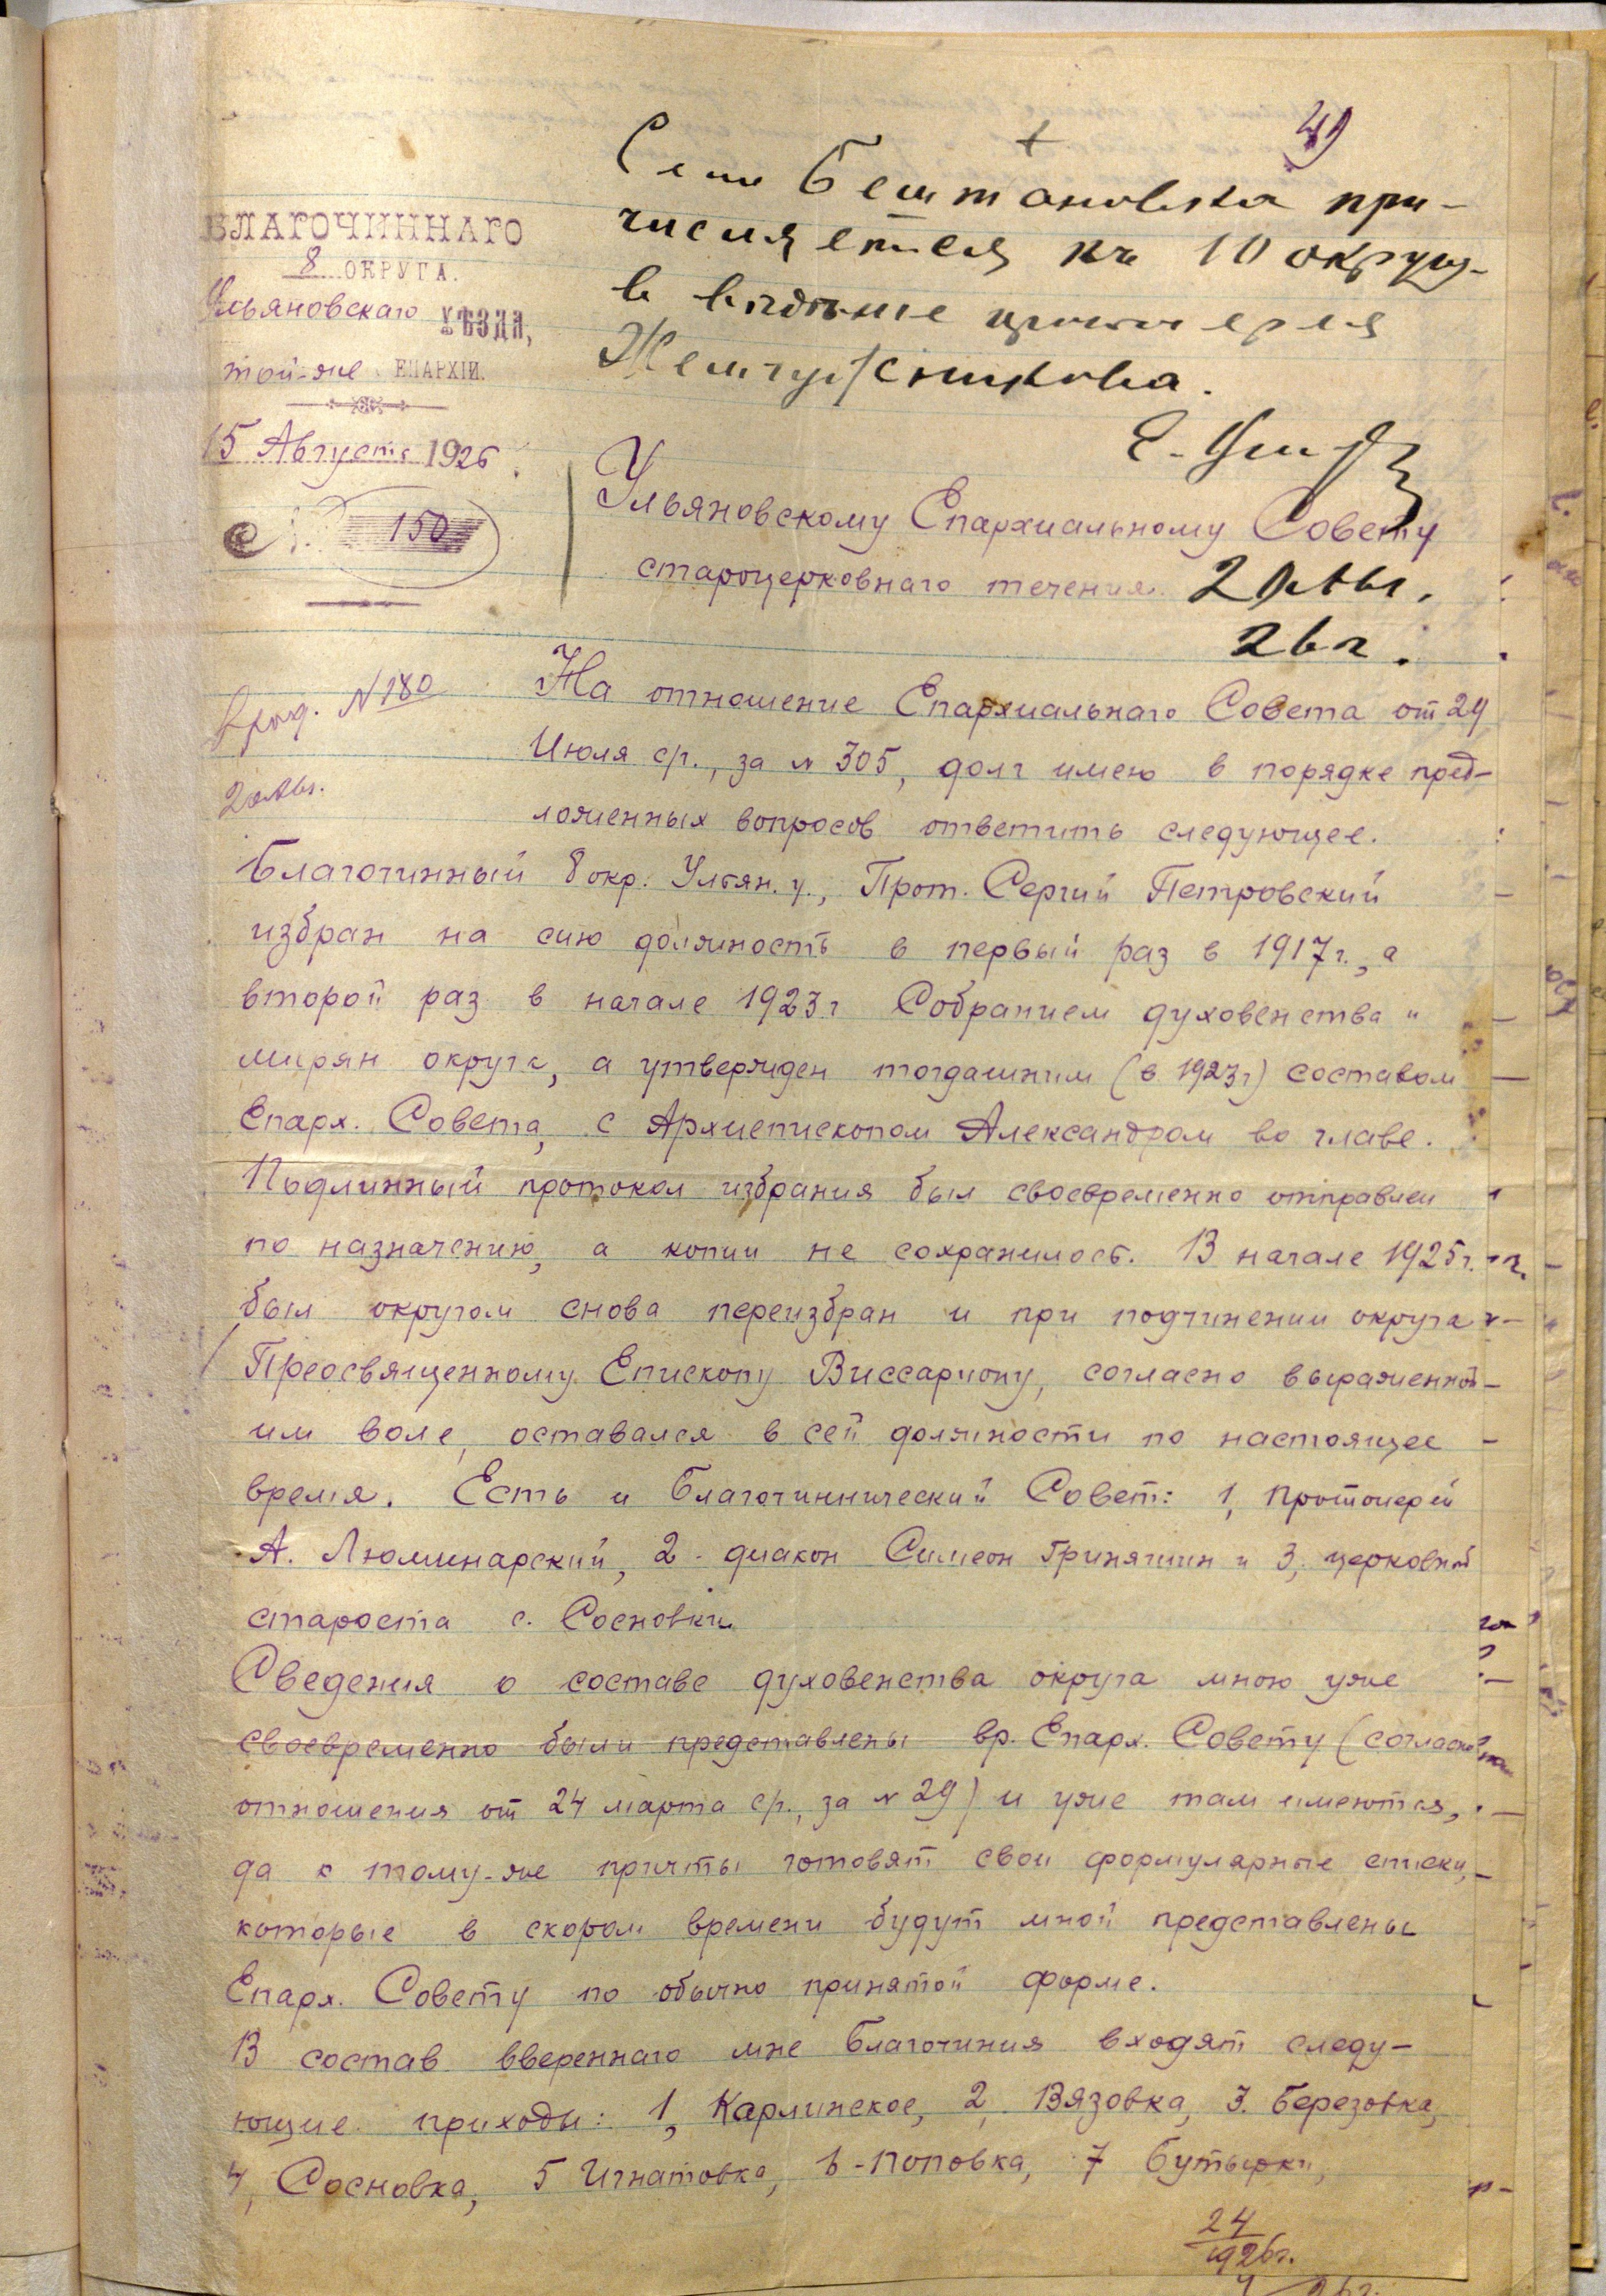 49
+
Село Бештановка при-
числяется къ 10 округу
в ведение протоиерея
Жемчужникова.
БЛАГОЧИННАГО
8 ОКРУГА.
Ульяновскаго УѢЗДА,
той-же ЕПАРХІИ.
15 Августа 1926
150
Ульяновскому Епархиальному Совету
староцерковнаго течения.
26 г.
№ 180
На отношение Епархиальнаго Совета от 29
Июля с/г., за № 305, долг имею в порядке пред-
ложенных вопросов ответить следующее.
Благочинный 8 окр. Ульян. у., Прот. Сергий Петровский
избран на сию должность в первый раз в 1917 г., а
второй раз в начале 1923 г Собранием духовенства и
мирян округа, а утвержден тогдашним (в 1923 г) составом
Епарх. Совета, с Архиепископом Александром во главе.
Подлинный протокол избрания был своевременно отправлен
по назначению, а копии не сохранилось. В начале 1925 г.
был округом снова переизбран и при подчинении округа
Преосвященному Епископу Виссариону, согласно выраженной
им воле, оставался в сей должности по настоящее
время. Есть и Благочиннический Совет: 1, протоиерей
А. Люминарский, 2 - диакон Симеон Гриняшин и 3, церковный
староста с. Сосновки
Сведения о составе духовенства округа мною уже
своевременно были представлены вр. Епарх. Совету (согласно
отношения от 24 марта с/г., за № 29) и уже там имеются,
да к тому-же причты готовят свои формулярные списки,
которые в скором времени будут мной представлены
Епарх. Совету по обычно принятой форме.
В состав ввереннаго мне благочиния входят следу-
ющие приходы: 1, Карлинское, 2, Вязовка, 3. Березовка,
4, Сосновка, 5 Игнатовка, 6 - Поповка, 7 Бутырки,
24
1926 г.